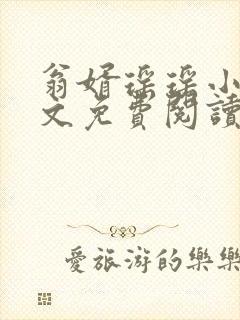 翁婿瑶瑶小
文免費閱讀
愛旅游的樂樂